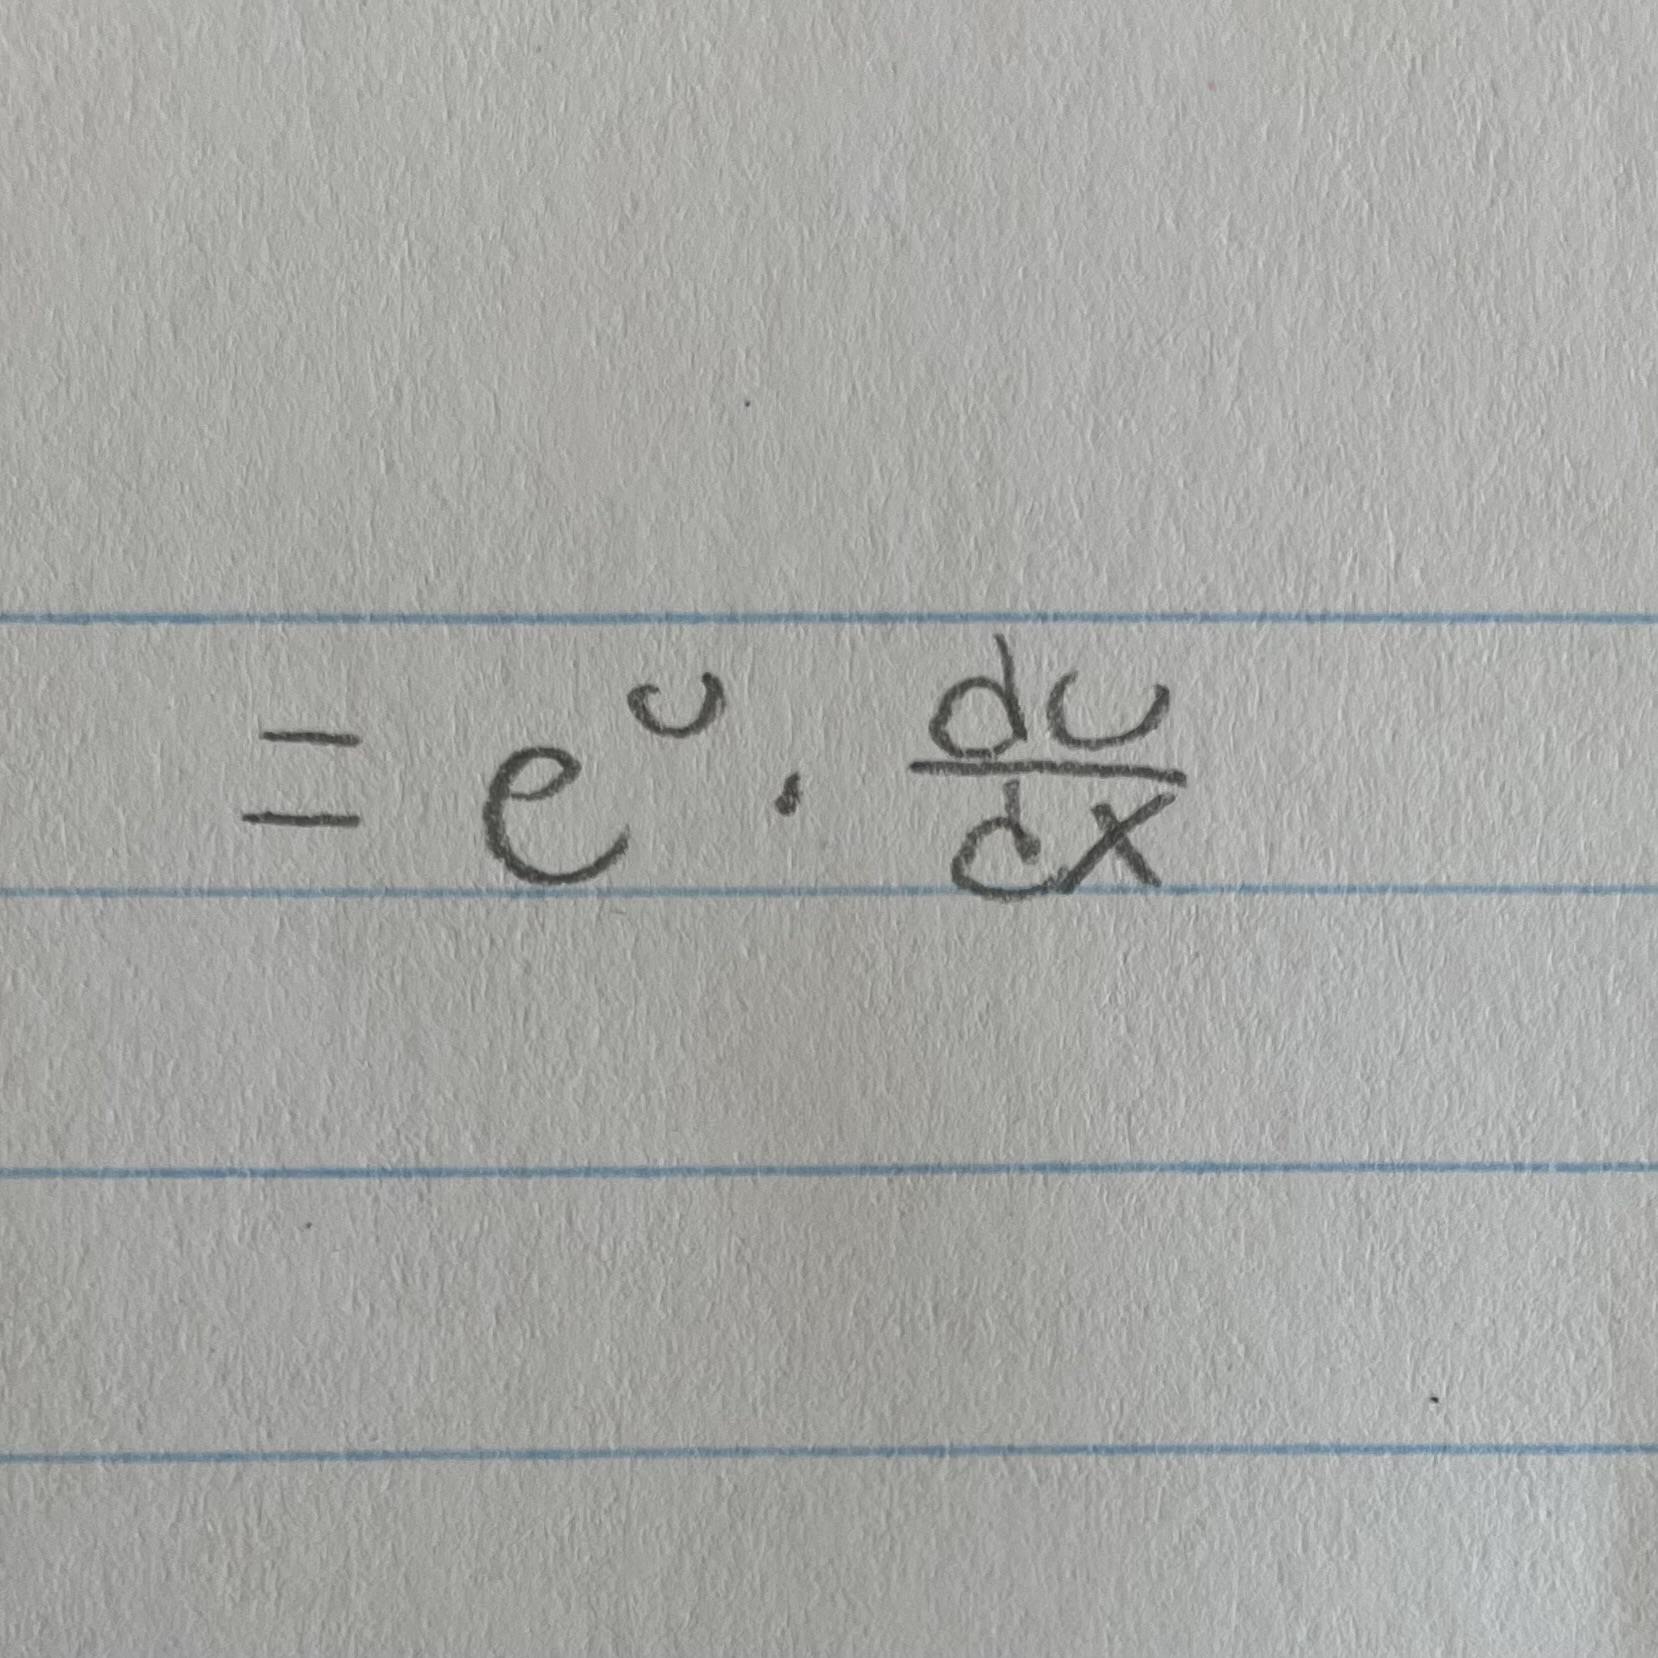 = e^u · du/dx